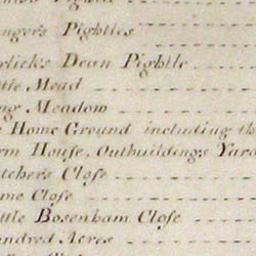 Pightle
nger's Pightles
rlick's Dean Pightle
ttle Mead
ng Meadow
Home Ground including th
rm House, Outbuildings Yard
tcher's Close
me Close
ttle Bosenham Close
undred Acres